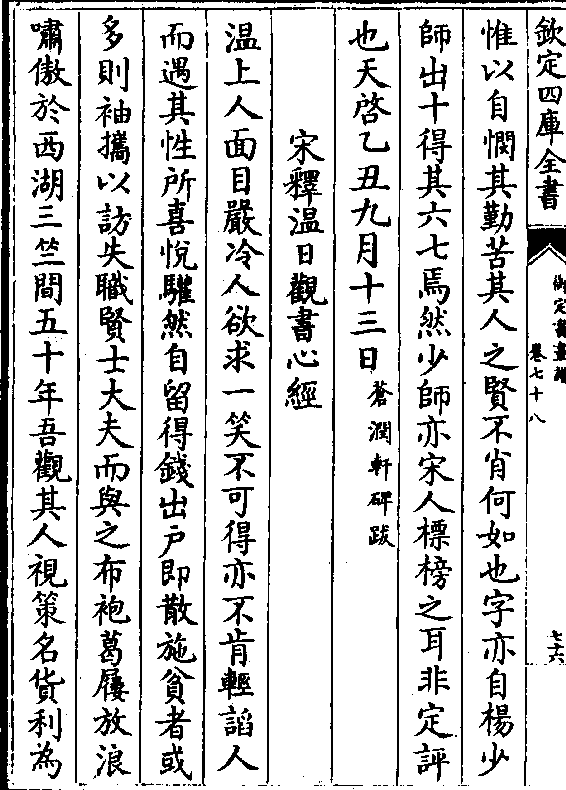 欽定四庫全書
御定書畫譜
卷七十八
七十六
惟以自憫其勤苦其人之賢不肖何如也字亦自楊少
師出十得其六七焉然少師亦宋人標榜之耳非定評
也天啓乙丑九月十三日
蒼潤軒碑跋
宋釋溫日觀書心經
温上人面目嚴冷人欲求一笑不可得亦不肯輕謟人
而遇其性所喜悅驩然自留得錢出戶即散施貧者或
多則袖攜以訪失職賢士大夫而與之布袍葛屨放浪
嘯傲於西湖三竺間五十年吾觀其人視策名貨利為